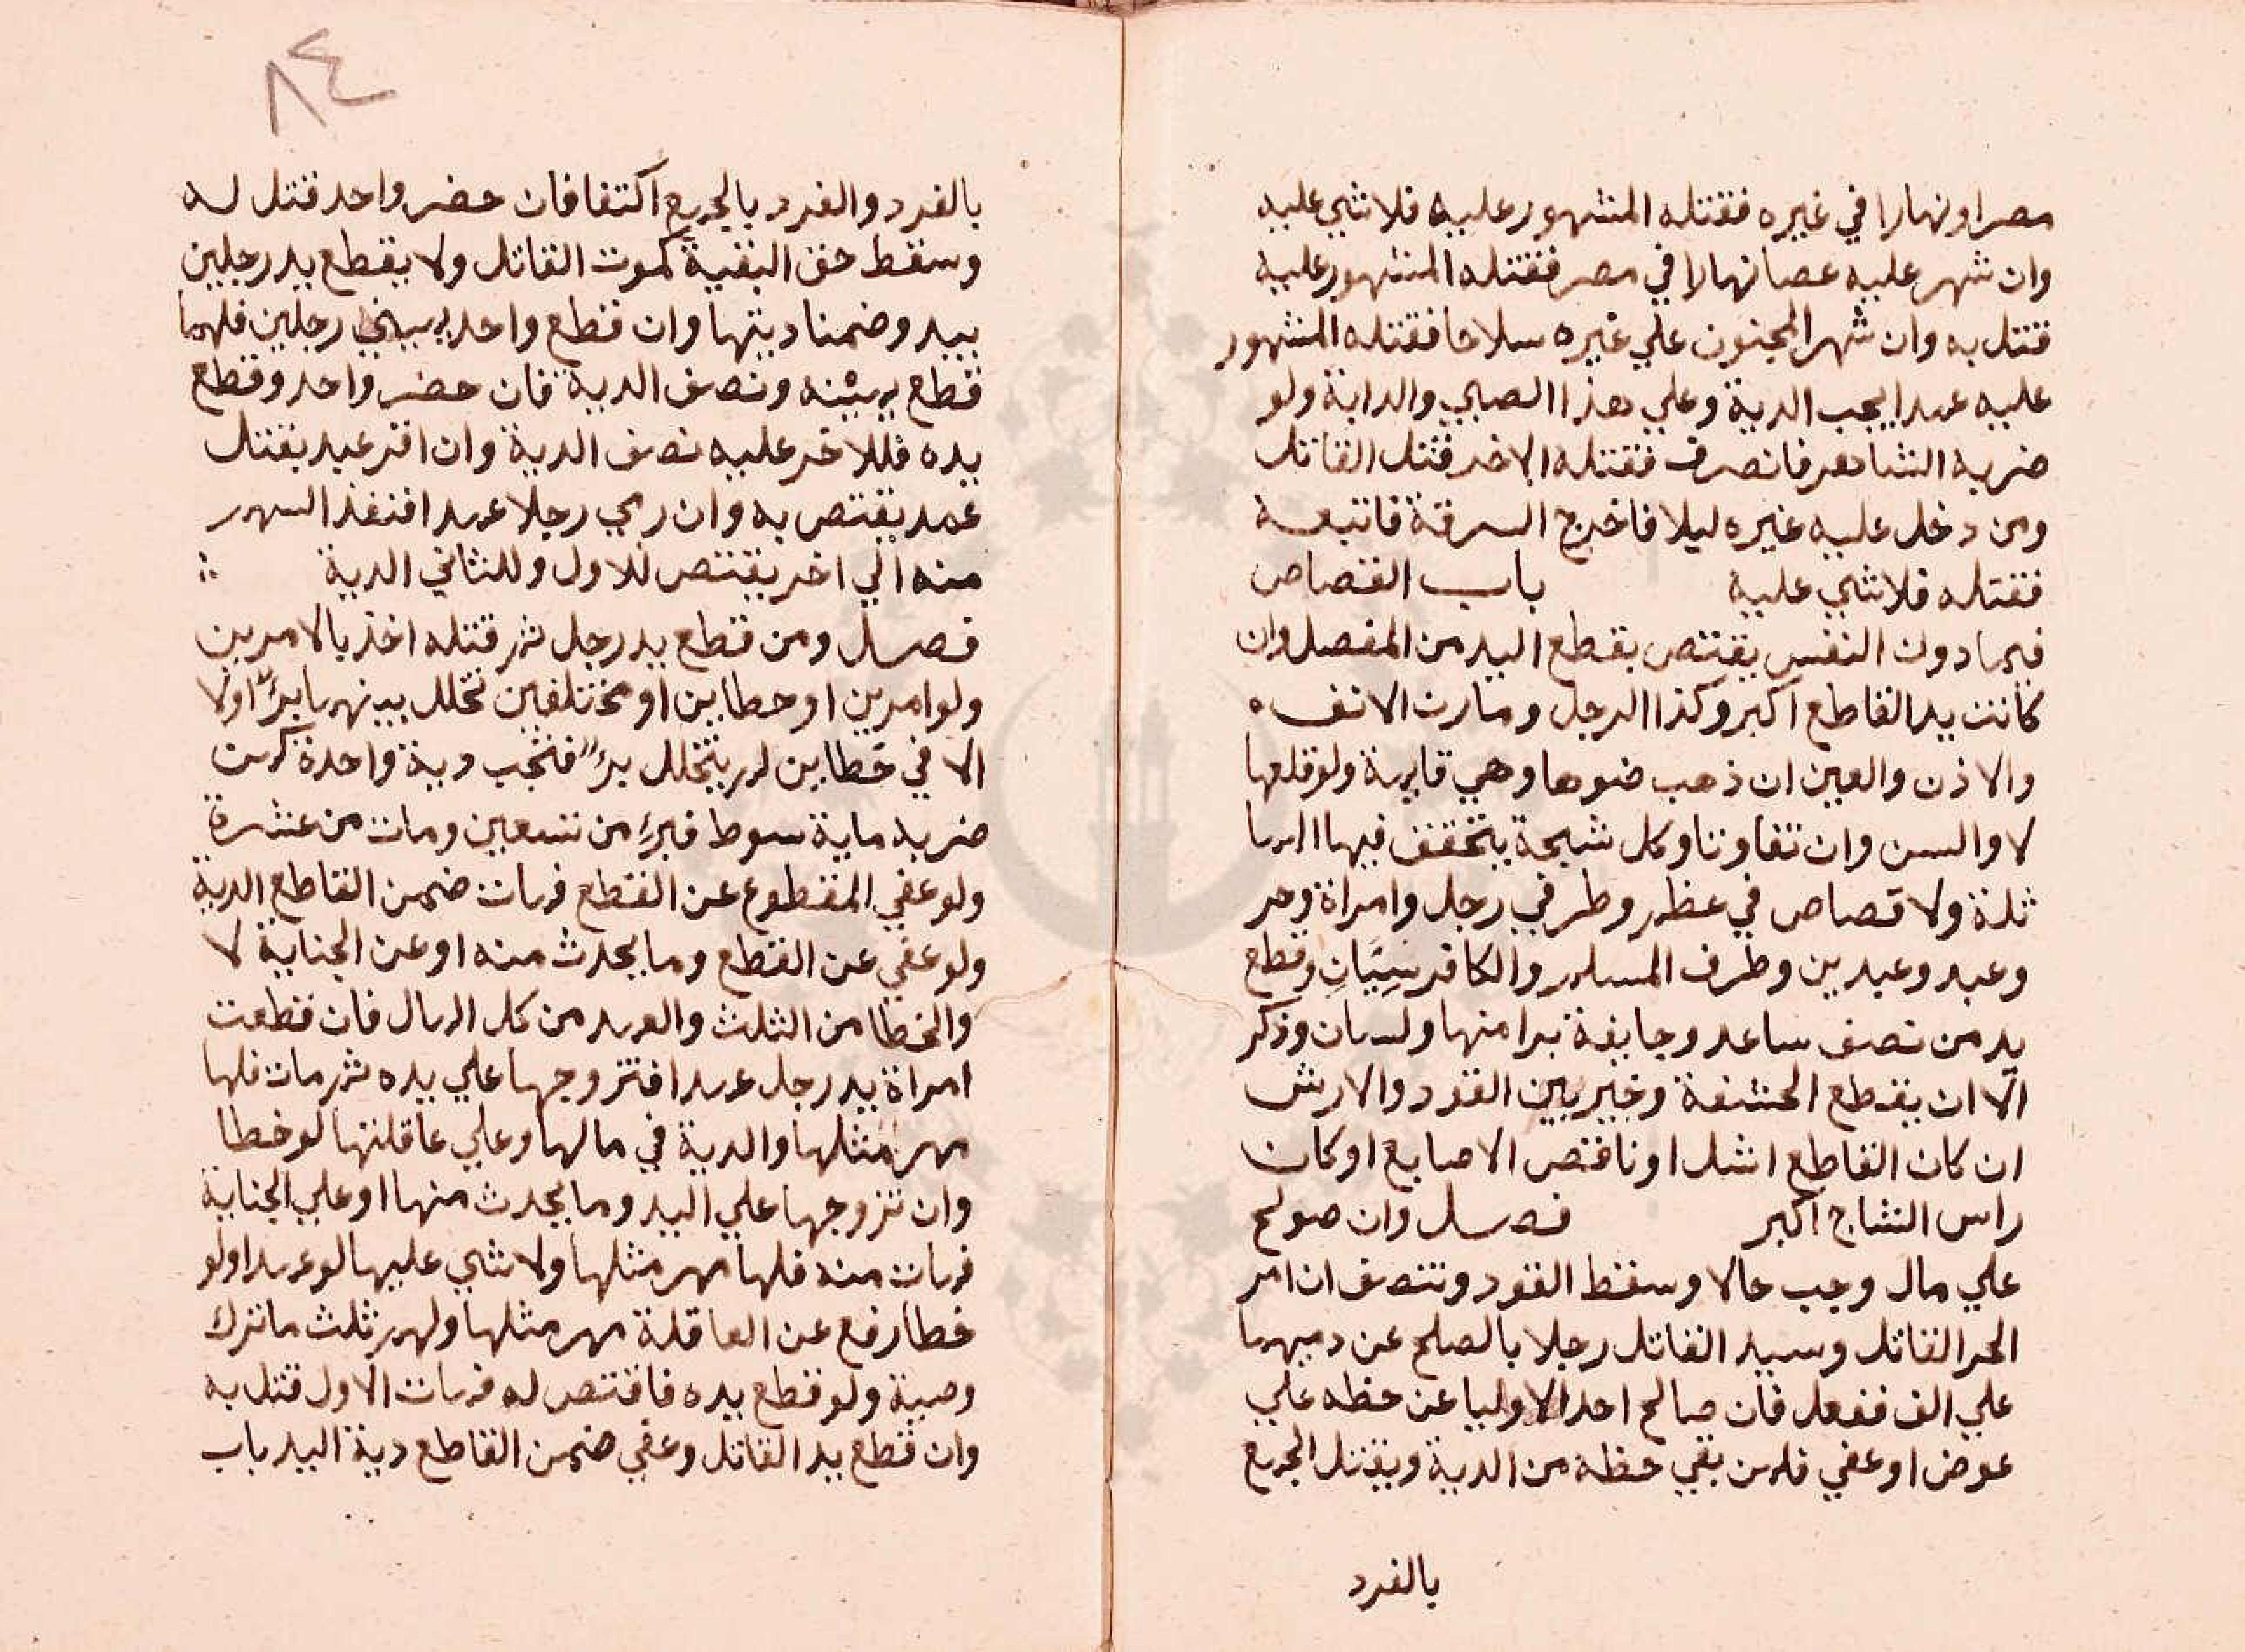 مصرا او نهارا في غيره فقتله المشهور عليه فلا شي عليه
وان شهر عليه عصا نهارا في مصر فقتله المشهور عليه
قتل به وان شهر المجنون علي غيره سلاحا فقتله المشهور
عليه عمدا يجب الدية وعلي هذا الصبي والدابة ولو
ضربه الشاهر فانصرف فقتله الاخر قتل القاتل
ومن دخل عليه غيره ليلا فاخرج السرقة فاتبعه
فقتله فلا شي عليه باب القصاص
فيما دون النفس يقتص بقطع اليد من المفصل وان
كانت يد القاطع اكبر وكذا الرجل ومارن الانف
والاذن والعين ان ذهب ضوها وهي قايمة ولو قلعها
لا والسن وان تفاوتا وكل شجة يتحقق فيها المما
ثلة ولا قصاص في عظم وطرفي رجل وامراة وحر
وعبد وعبدين وطرف المسلم والكافر سيّان وقطع
يد من نصف ساعد وجايفة برا منها ولسان وذكر
الا ان يقطع الحشفة وخير بين القود والارش
ان كان القاطع اشل او ناقص الاصابع او كان
راس الشاج اكبر فصل وان صولح
علي مال وجب حالا وسقط القود وتنصف ان امر
الحر القاتل وسيد القاتل رجلا بالصلح عن دميهما
علي الف ففعل فان صالح احد الاوليا عن حظه علي
عوض او عفي فلمن بقي حظه من الدية ويقتل الجمع
بالفرد
٨٤
بالفرد والفرد بالجمع اكتفا فان حضر واحد قتل له
وسقط حق البقية كموت القاتل ولا يقطع يد رجلين
بيد وضمنا ديتها وان قطع واحد يميني رجلين فلهما
قطع يمينه ونصف الدية فان حضر واحد وقطع
يده فللاخر عليه نصف الدية وان اقر عبد بقتل
عمد يقتص به وان رمي رجلا عمدا فنفذ السهم
منه الي اخر يقتص للاول وللثاني الدية
فصل ومن قطع يد رجل ثم قتله اخذ بالامرين
ولو عمدين او خطاين او مختلفين تخلل بينهما برء اولا
الا في خطاين لم يتخلل برء فتجب دية واحدة كمن
ضربه ماية سوط فبرء من تسعين ومات من عشرة
ولو عفي المقطوع عن القطع فمات ضمن القاطع الدية
ولو عفي عن القطع وما يحدث منه او عن الجناية لا
والخطا من الثلث والعمد من كل المال فان قطعت
امراة يد رجل عمدا فتزوجها علي يده ثم مات فلها
مهر مثلها والدية في مالها وعلي عاقلتها لو خطا
وان تزوجها علي اليد وما يحدث منها او علي الجناية
فمات منه فلها مهر مثلها ولا شي عليها لو عمدا ولو
خطا رفع عن العاقلة مهر مثلها ولهم ثلث ما ترك
وصية ولو قطع يده فاقتص له فمات الاول قتل به
وان قطع يد القاتل وعفي ضمن القاطع دية اليد باب